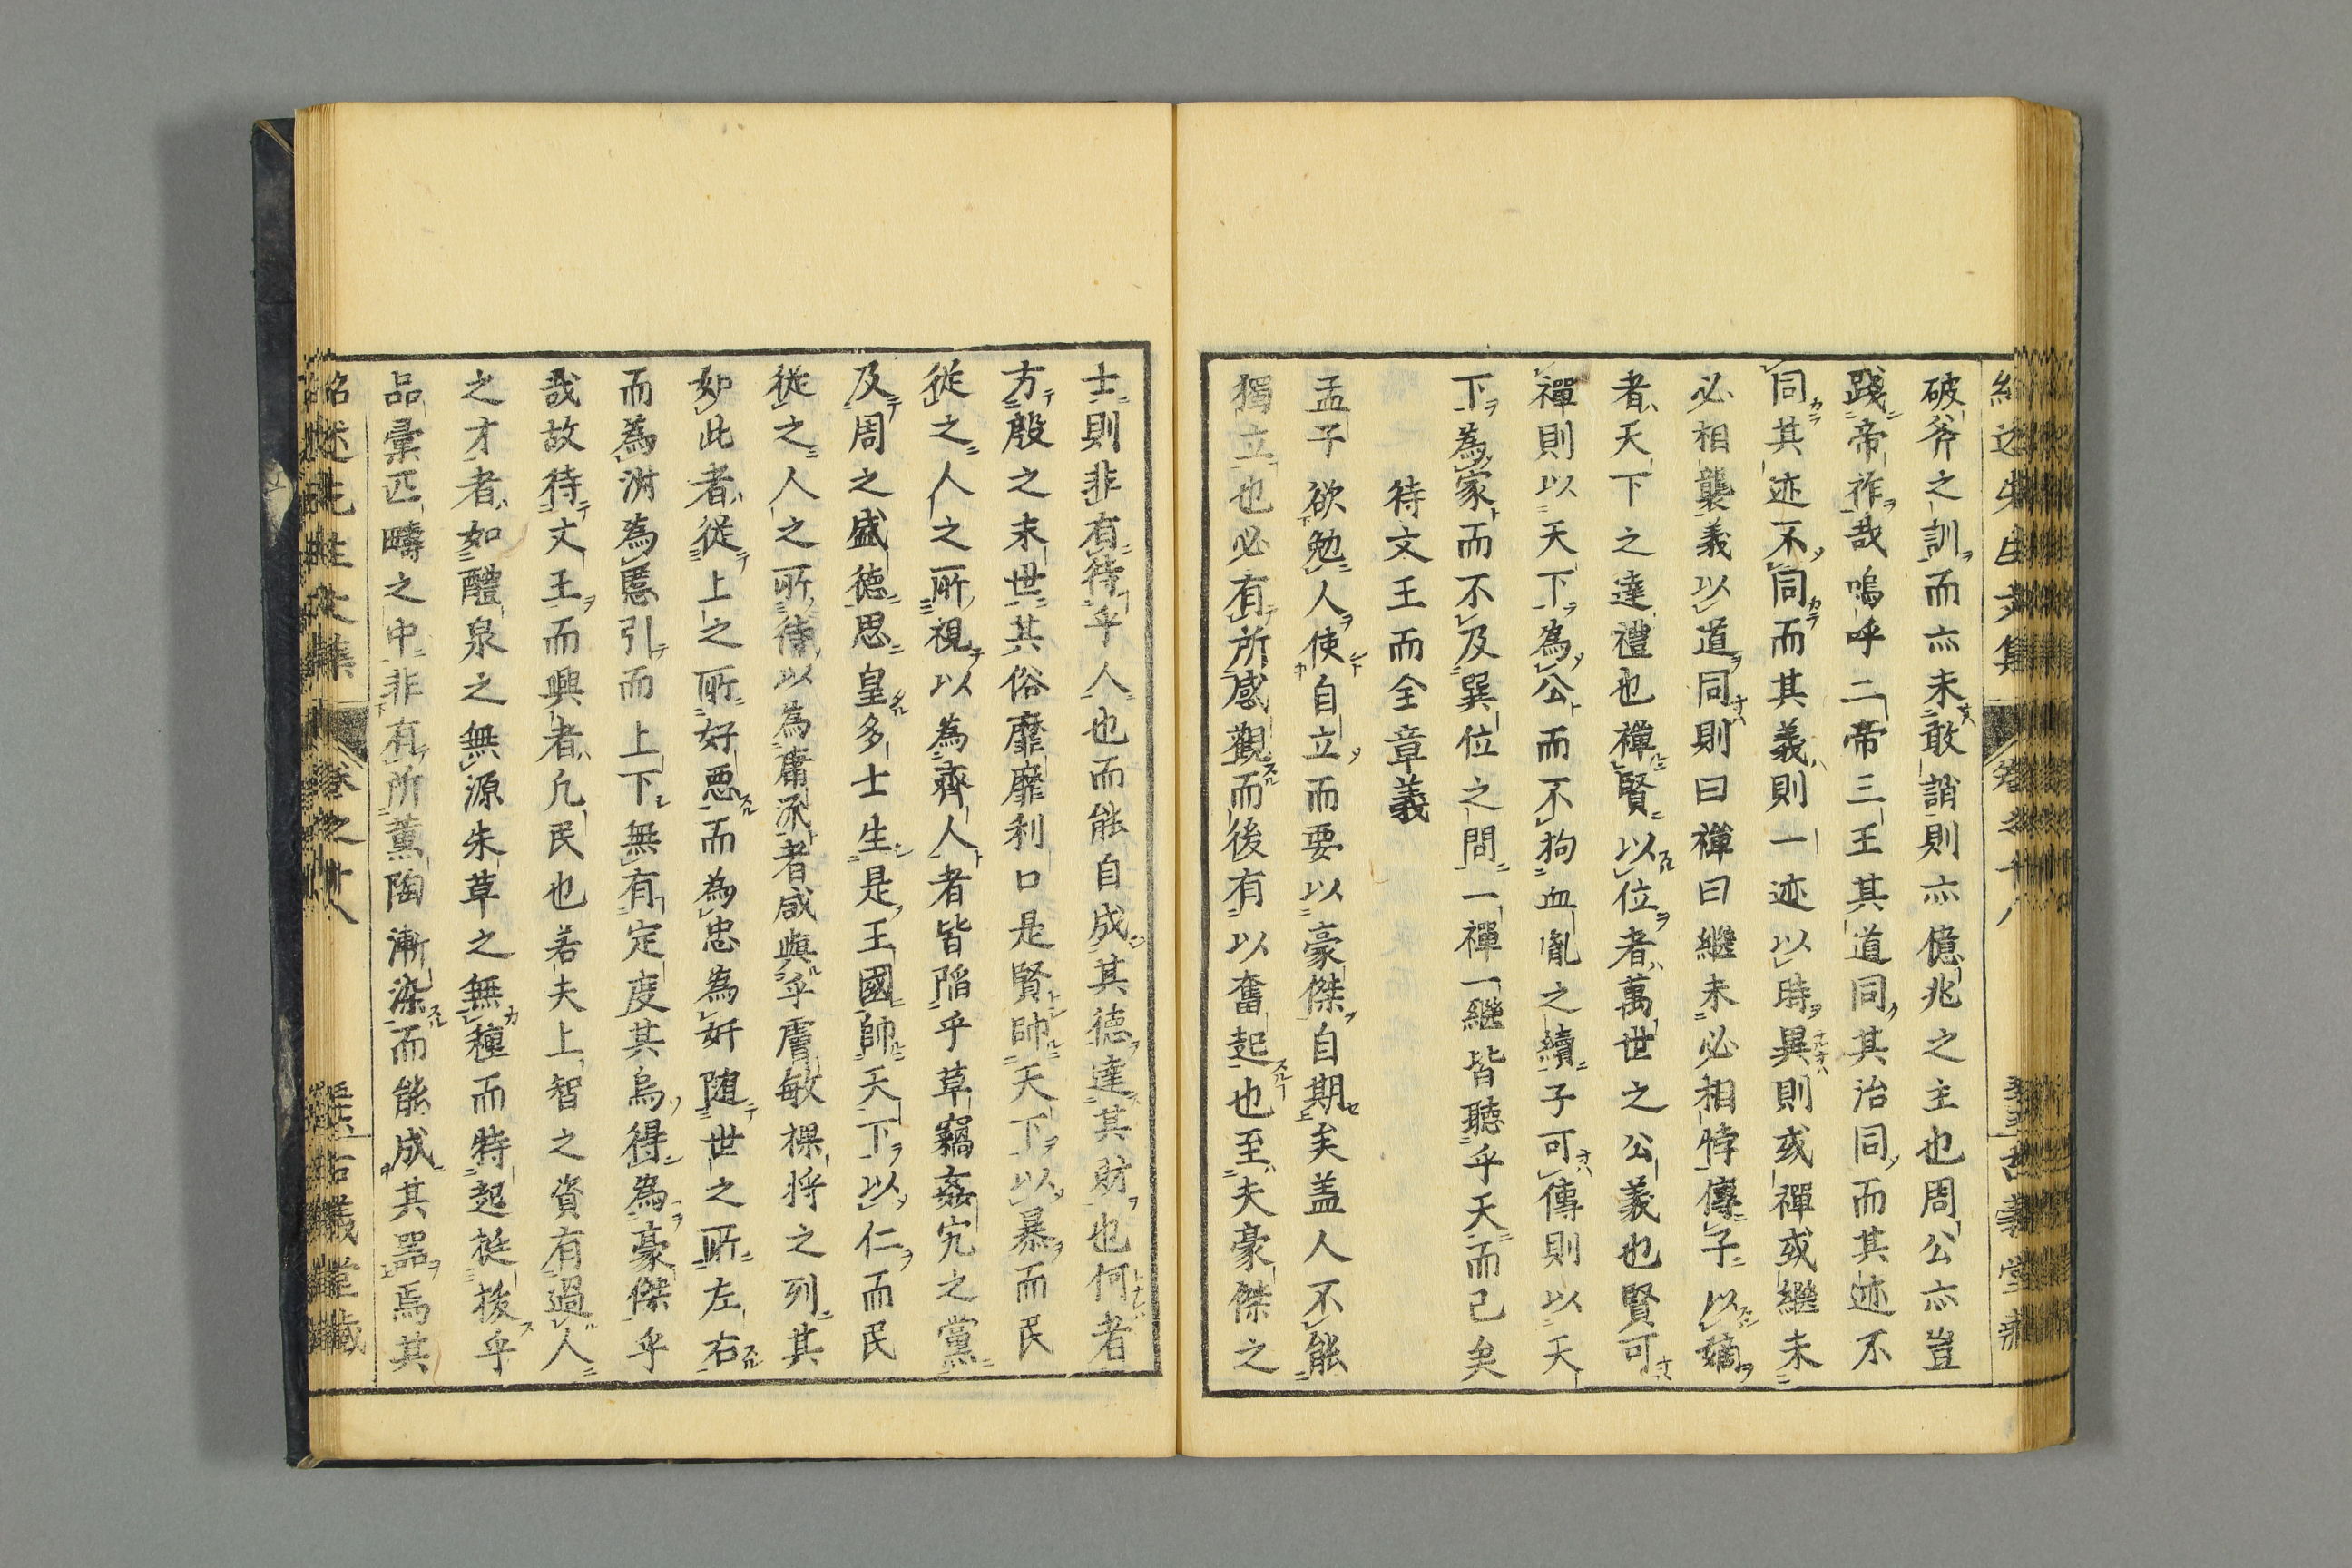 破斧之訓而亦未敢誚則亦億兆之主也周公亦豈
踐帝祚哉嗚呼二帝三王其道同其治同而其迹不
同其迹不同而其義則一迹以時異則或禪或繼未
必相襲義以道同則曰禪曰繼未必相悖傳子以嫡
者天下之達禮也禪賢以位者萬世之公義也賢可
禪則以天下為公而不拘血胤之續子可傳則以天
下為家而不及巽位之問一禪一繼皆聽乎天而已矣
待文王而全章義
孟子欲勉人使自立而要以豪傑自期矣盖人不能
獨立也必有所感觀而後有以奮起也至夫豪傑之
士則非有待乎人也而能自成其德達其財也何者
方殷之末世其俗靡靡利口是賢帥天下以暴而民
從之人之所視以為齊人者皆陷乎草竊姦宄之黨
及周之盛德思皇多士生是王國帥天下以仁而民
從之人之所待以為庸流者咸與乎膚敏祼將之列其
如此者從上之所好惡而為忠為奸隨世之所左右
而為淑為慝引而上下無有定度其烏得為豪傑乎
哉故待文王而興者凡民也若夫上智之資有過人
之才者如醴泉之無源朱草之無種而特起挺拔乎
品彙匹疇之中非有所薰陶漸染而能成其器焉其
紹述先生文集 卷之十八 古義堂藏